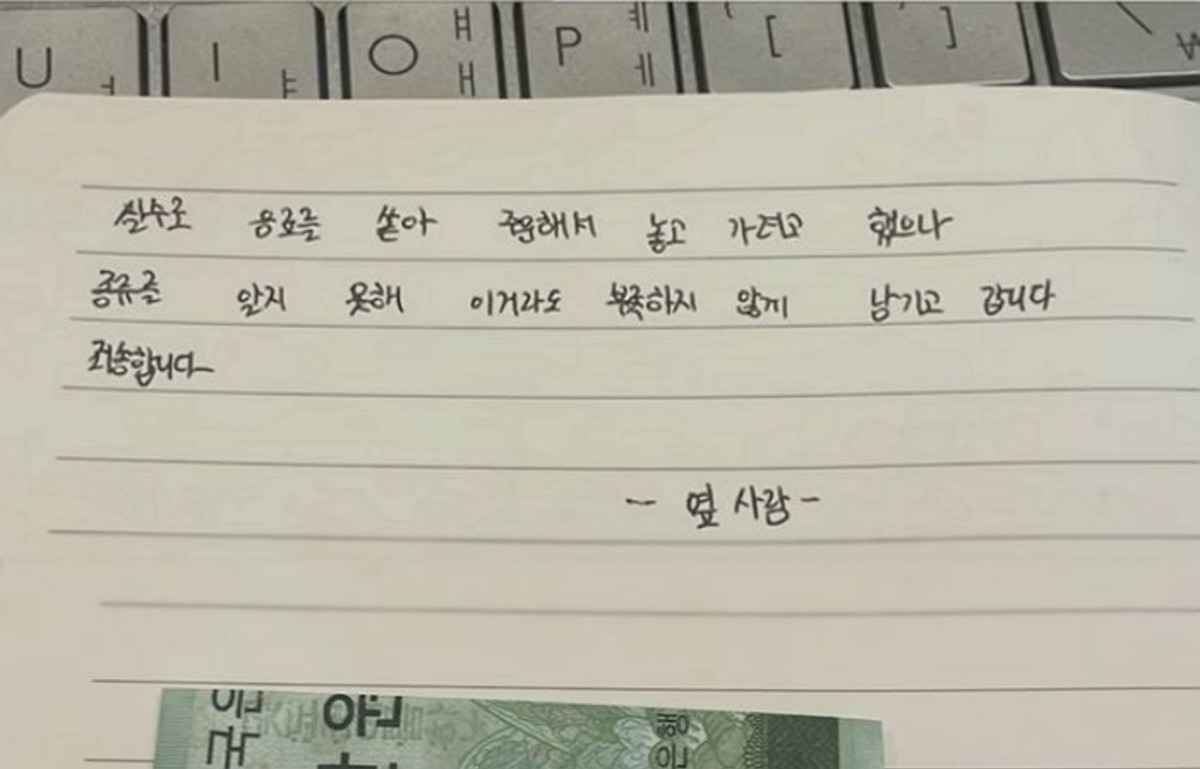 U ㅕ I ㅑ O ㅒ ㅐ P ㅖ ㅔ { [ } ] \ ₩
실수로 음료를 쏟아 주문해서 놓고 가려고 했으나
종류를 알지 못해 이거라도 부족하지 않게 남기고 갑니다
죄송합니다
- 옆 사람 -
한국은행